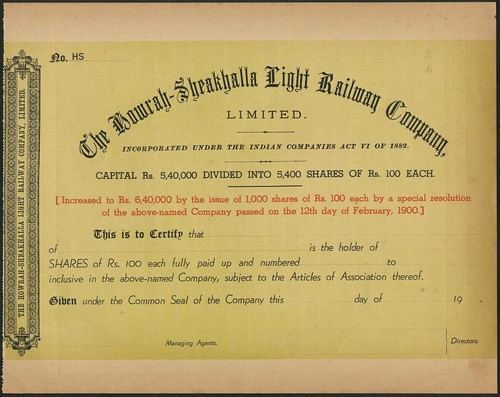 No. HS
The Howrah-Sheakhalla Light Railway Company,
LIMITED.
INCORPORATED UNDER THE INDIAN COMPANIES ACT VI OF 1882.
CAPITAL Rs. 5,40,000 DIVIDED INTO 5,400 SHARES OF Rs. 100 EACH.
[Increased to Rs. 6,40,000 by the issue of 1,000 shares of Rs. 100 each by a special resolution
of the above-named Company passed on the 12th day of February, 1900.]
This is to Certify that
of is the holder of
SHARES of Rs. 100 each fully paid up and numbered to
inclusive in the above-named Company, subject to the Articles of Association thereof.
Given under the Common Seal of the Company this day of 19
Managing Agents. Directors.
THE HOWRAH-SHEAKHALLA LIGHT RAILWAY COMPANY, LIMITED.